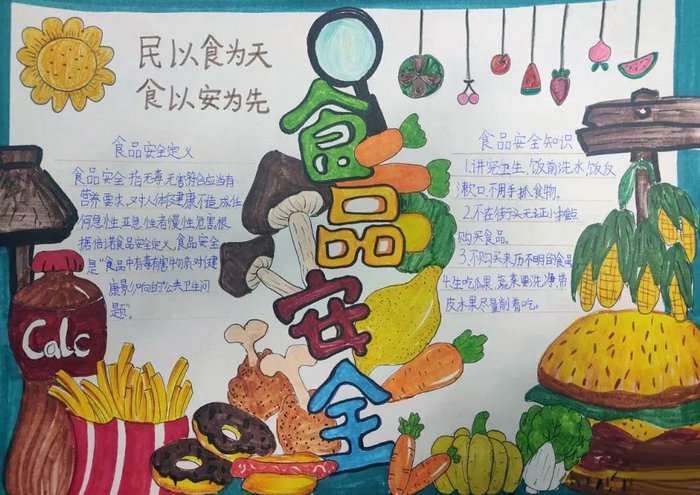 民以食为天
食以安为先
食品安全
食品安全定义
食品安全指无毒、无害符合应当有
营养要求,对人体健康不造成任
何急性、亚急性者慢性危害根
据倍诺食品安全定义,食品安全
是"食品中有毒有害物质对健
康影响的公共卫生问
题"。
食品安全知识
1.讲究卫生,饭前洗水,饭后
漱口、不用手抓食物。
2.不在街头无证小摊点
购买食品。
3.不购买来历不明的食品
4.生吃瓜果、蔬菜要洗净,带
皮水果尽量削着吃。
Calc